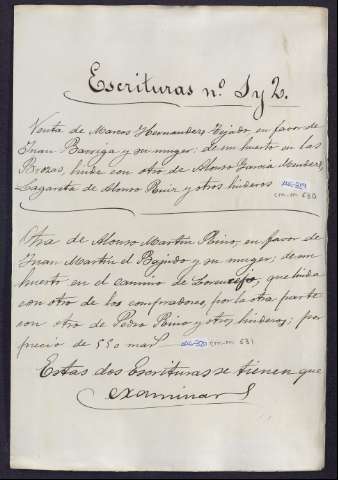 Escrituras nº. 1 y 2.
Venta de Marcos Hernandez Tejado en favor de
Juan Barriga y su muger; de un huerto en las
Brozas, linde con otro de Alonso García Mendez,
Lagareta de Alonso Ruiz y otros linderos
cm.m 630
Otra de Alonso Martin Rino, en favor de
Juan Martin el Bajudo y su muger; de un
huerto en el camino de que linda
con otro de los compradores, por la otra parte
con otro de Pedro Rino y otros linderos; por
precio de 550 mar.s
cm.m 631
Estas dos Escrituras se tienen que
examinar